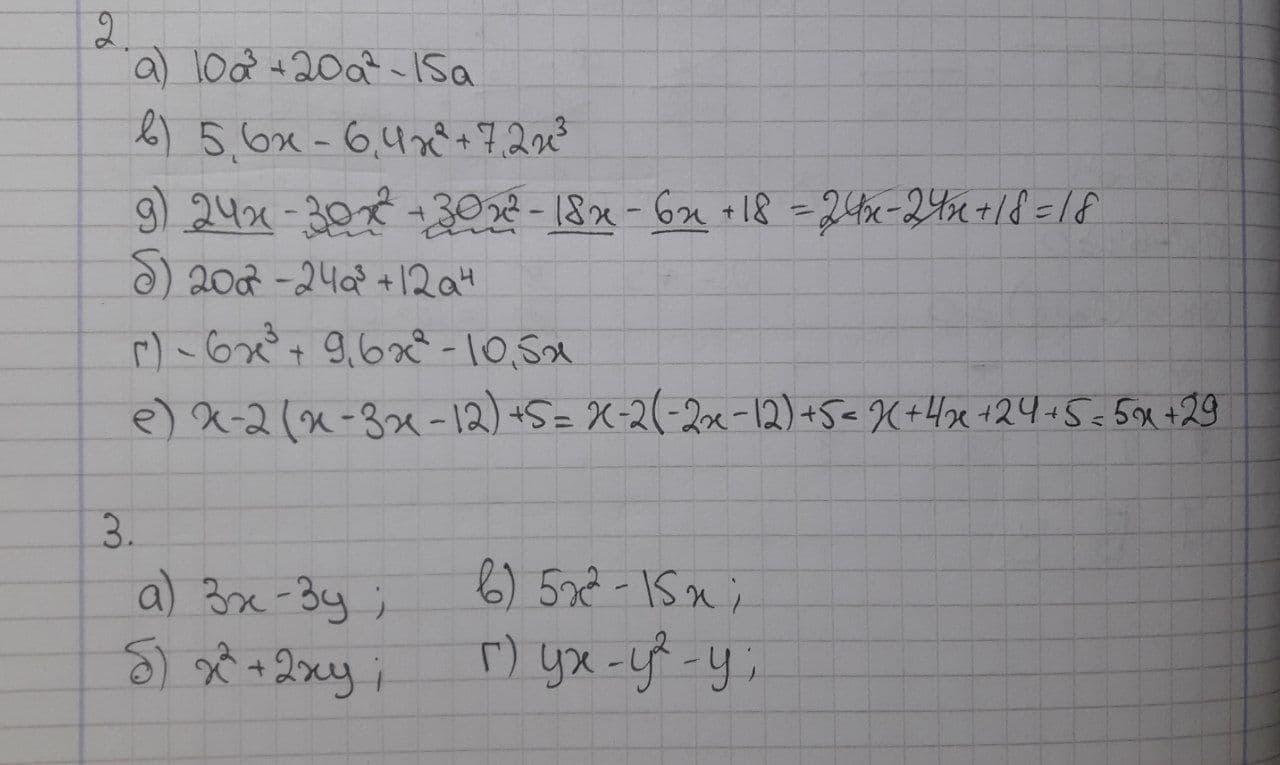 2.
а) 10a³ + 20a² - 15a
в) 5,6x - 6,4x² + 7,2x³
д) 24x - 30x² + 30x² - 18x - 6x + 18 = 24x - 24x + 18 = 18
б) 20a² - 24a³ + 12a⁴
г) - 6x³ + 9,6x² - 10,5x
е) x - 2(x - 3x - 12) + 5 = x - 2(-2x - 12) + 5 = x + 4x + 24 + 5 = 5x + 29
3.
а) 3x - 3y ; в) 5x² - 15x ;
б) x² + 2xy ; г) yx - y² - y ;